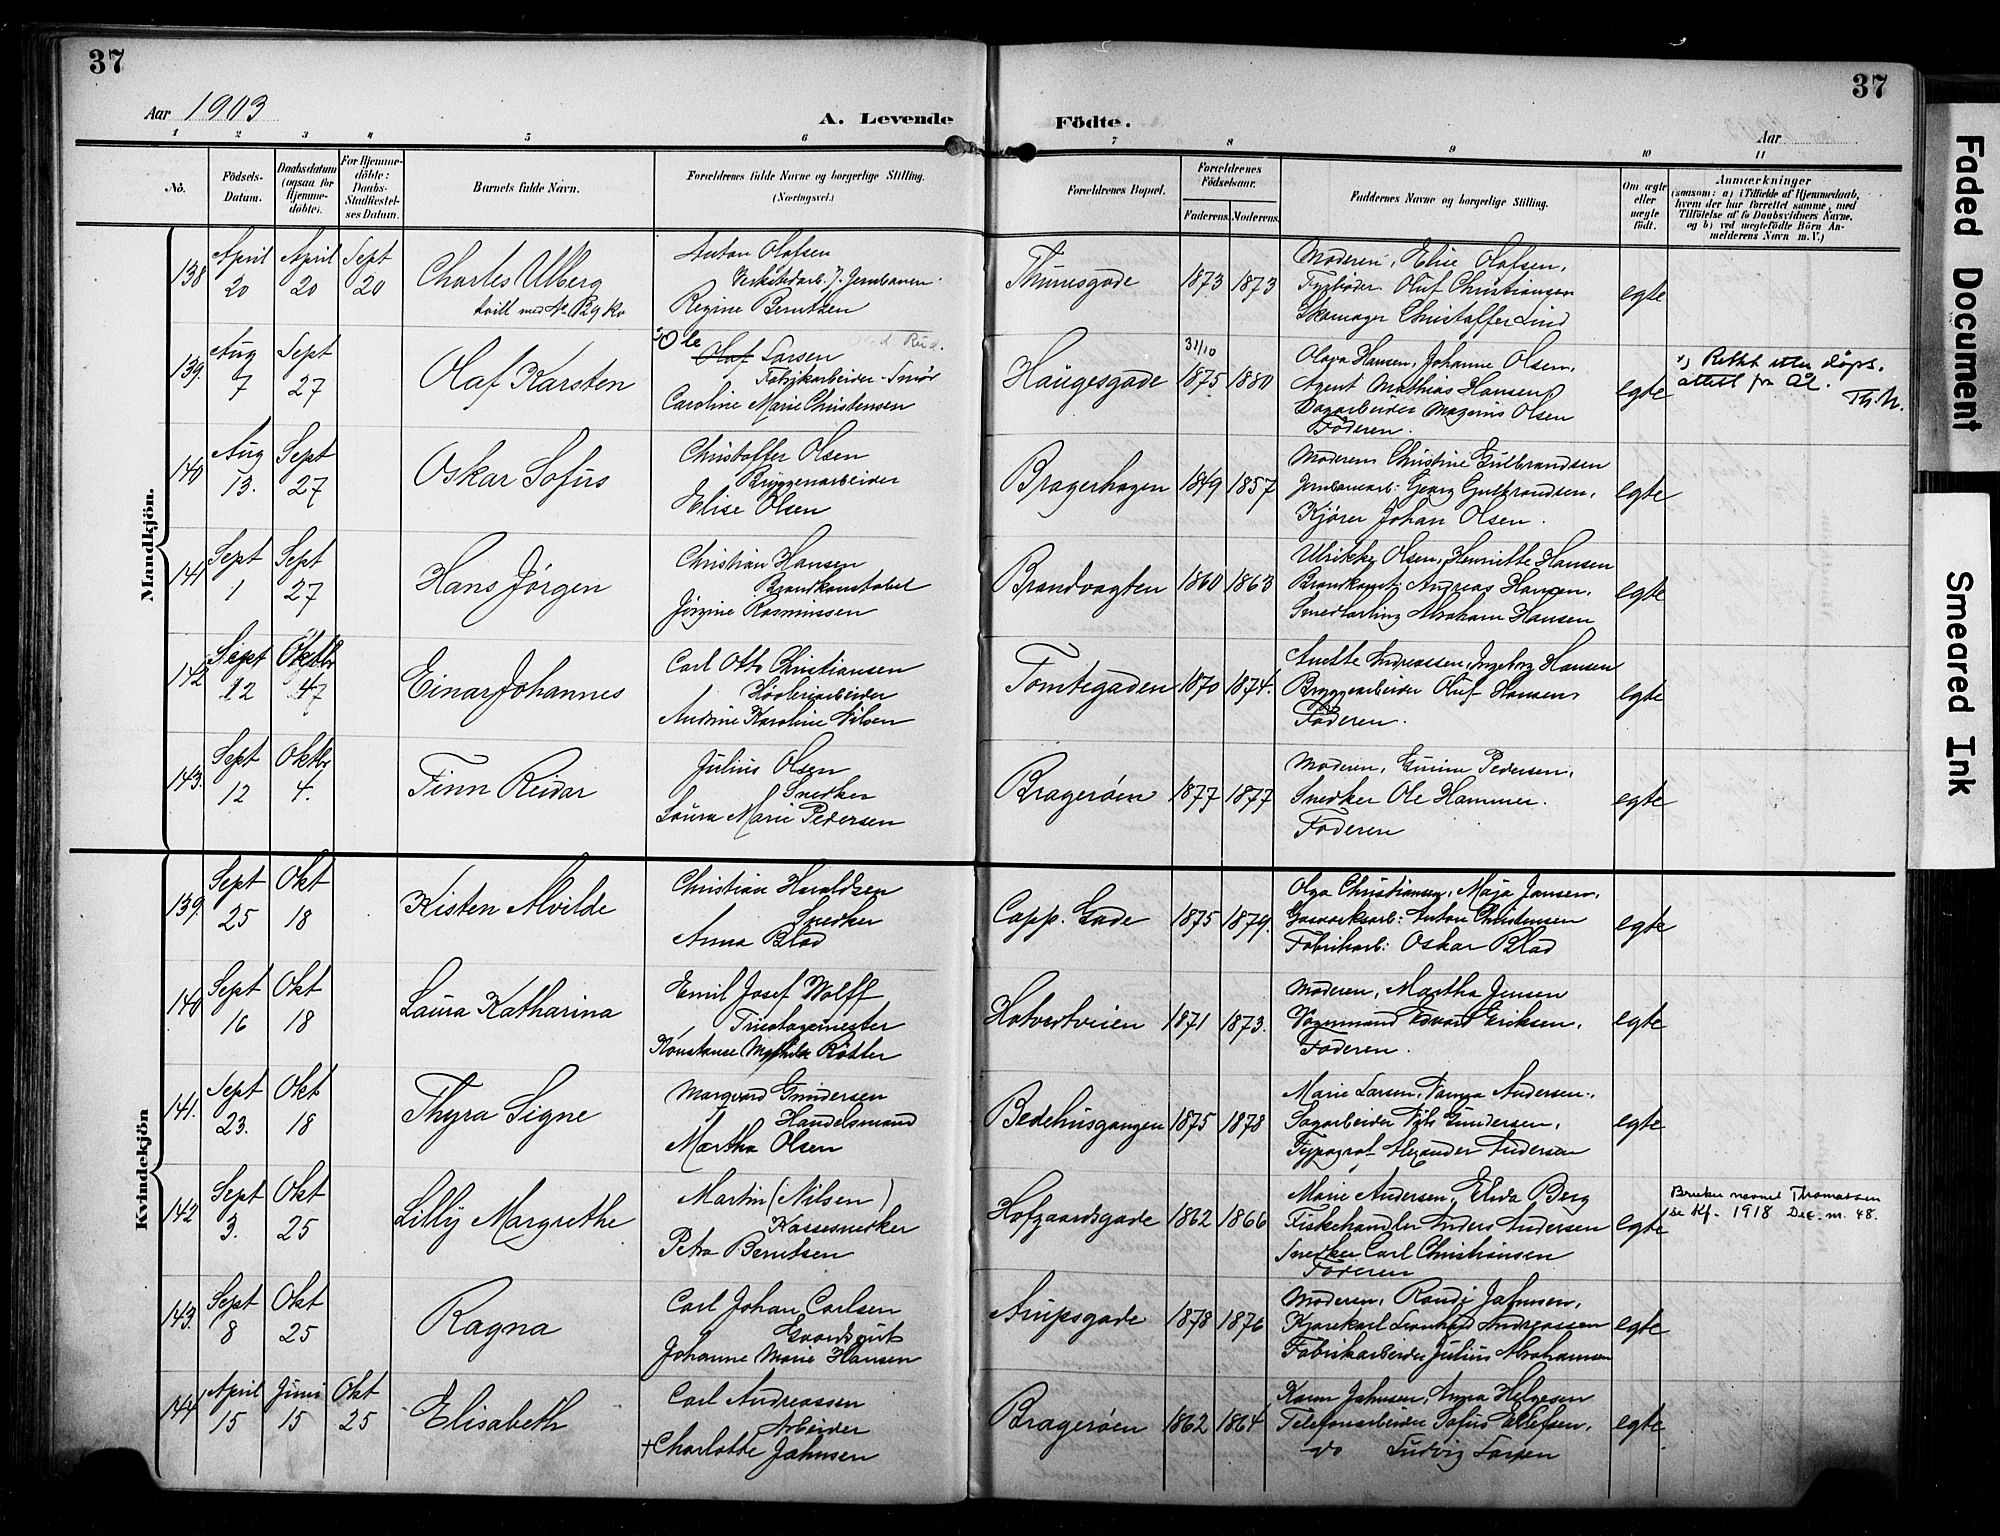 37
37
Aar 1903
A. Levende Födte.
Aar
1 2 3 4 5 6 7 8 9 10 11
No.
Födsels-
Datum.
Daabsdatum
(ogsaa for
Hjemme-
döbte).
For Hjemme-
döbte:
Daabs-
Stadfæstel-
ses Datum.
Barnets fulde Navn.
Forældrenes fulde Navne og borgerlige Stilling.
(Næringsvei.)
Forældrenes Bopæl.
Forældrenes
Födselsaar.
Faderens. Moderens.
Faddernes Navne og borgerlige Stilling.
Om ægte
eller
uægte
født.
Anmærkninger
(saasom: a) i Tilfælde af Hjemmedaab,
hvem der har forrettet samme, med
Tilföielse af to Daabsvidners Navne.
og b) ved uægtefödte Börn An-
melderens Navn m. V.)
Mandkjön.
138
April
20
April
20
Sept
20
Charles Ulberg
tvill med No. 129 Kv
Anton Olafsen
Verkstedarb. v. Jernbanen.
Regine Berntsen
Thunesgade
1873 1873
Moderen, Elise Olafsen,
Fyrbøder Oluf Christiansen
Skomager Christoffer Lind
egte
139.
Aug
7
Sept
27
Olaf Karsten
Ole
Olaf Larsen
Fabrikarbeider
Caroline Marie Christensen
Haugesgade
31/10
1875 1880
Olava Hansen, Johanne Olsen,
Agent Mathias Hansen,
Dagarbeider Magnus Olsen
Faderen.
egte
Rettet efter dåps.
attest fra Ål.
Th. N.
140
Aug
13.
Sept
27
Oskar Sofus
Christoffer Olsen
Bryggearbeider
Elise Olsen
Bragerhagen
1849 1857
Moderen Christine Gulbrandsen
Jernbanearb: Georg Gulbrandsen,
Kjører Johan Olsen.
egte
141
Sept
1
Sept
27
Hans Jørgen
Christian Hansen
Brandkonstabel
Jørgine Rasmussen
Brandvagten
1860 1863
Ulrikke Olsen, Henriette Hansen
Brandkonst. Andreas Hansen,
Smedlærling Abraham Hansen
egte
142
Sept
12
Oktbr
4
Einar Johannes
Carl Otto Christiansen
Høvleriarbeider
Andrine Karoline Nilsen
Tomtegaden
1870 1874.
Anette Andreassen, Ingeborg Hansen
Bryggearbeider Oluf Hansen,
Faderen.
egte
143.
Sept
12
Oktbr
4.
Finn Reidar
Julius Olsen
Snedker
Laura Marie Pedersen
Bragerøen
1877 1877
Moderen, Gunine Pedersen,
Snedker Ole Hammer.
Faderen
egte
Kvindekjön
139.
Sept
25
Okt
18
Kisten Alvilde
Christian Haraldsen
Snedker
Anna Blad
Capp. Gade
1875 1879.
Olga Christiansen, Maja Jansen,
Gasverksarb: Anton Christensen
Fabrikarb: Oskar Blad
egte
140
Sept
16
Okt
18
Laura Katharina
Emil Josef Wolff
Tricotagemester
Konstanse Mathilde Rötter
Hotvedtveien
1871 1873.
Moderen, Martha Jensen
Vognmand Edvard Eriksen,
Faderen.
egte
141.
Sept
23.
Okt
18
Thyra Signe
Marqvard Gundersen
Handelsmand
Martha Olsen
Bedehusgangen
1875 1878
Marie Larsen, Vanga Andersen,
Sagarbeider Nils Gundersen,
Typograf Alexander Andersen
egte
142
Sept
3.
Okt
25
Lilly Margrethe
Martin (Nilsen)
Kassesnedker
Petra Berntsen
Hofgaardsgade
1862 1866
Marie Andersen, Elida Berg
Fiskehandler Anders Andersen
Snedker Carl Christiansen
Faderen
egte
Bruker navnet Thomassen
se Kf. 1918 Dec. nr. 48.
143.
Sept
8
Okt
25
Ragna
Carl Johan Carlsen
Gaardsgut
Johanne Marie Hansen
Arupsgade
1878 1876
Moderen, Randi Jahnsen,
Kjørekarl Leonhard Andreassen
Fabrikarbeider Julius Abrahamsen
egte
144
April
15
Juni
15
Okt
25
Elisabeth
Carl Andreassen
Arbeider
+ Charlotte Jahnsen
Bragerøen
1862 1864
Karen Jahnsen, Anna Helgesen
Telefonarbeider Sofus Ellefsen,
do Ludvig Larsen
egte
Faded Document
Smeared Ink